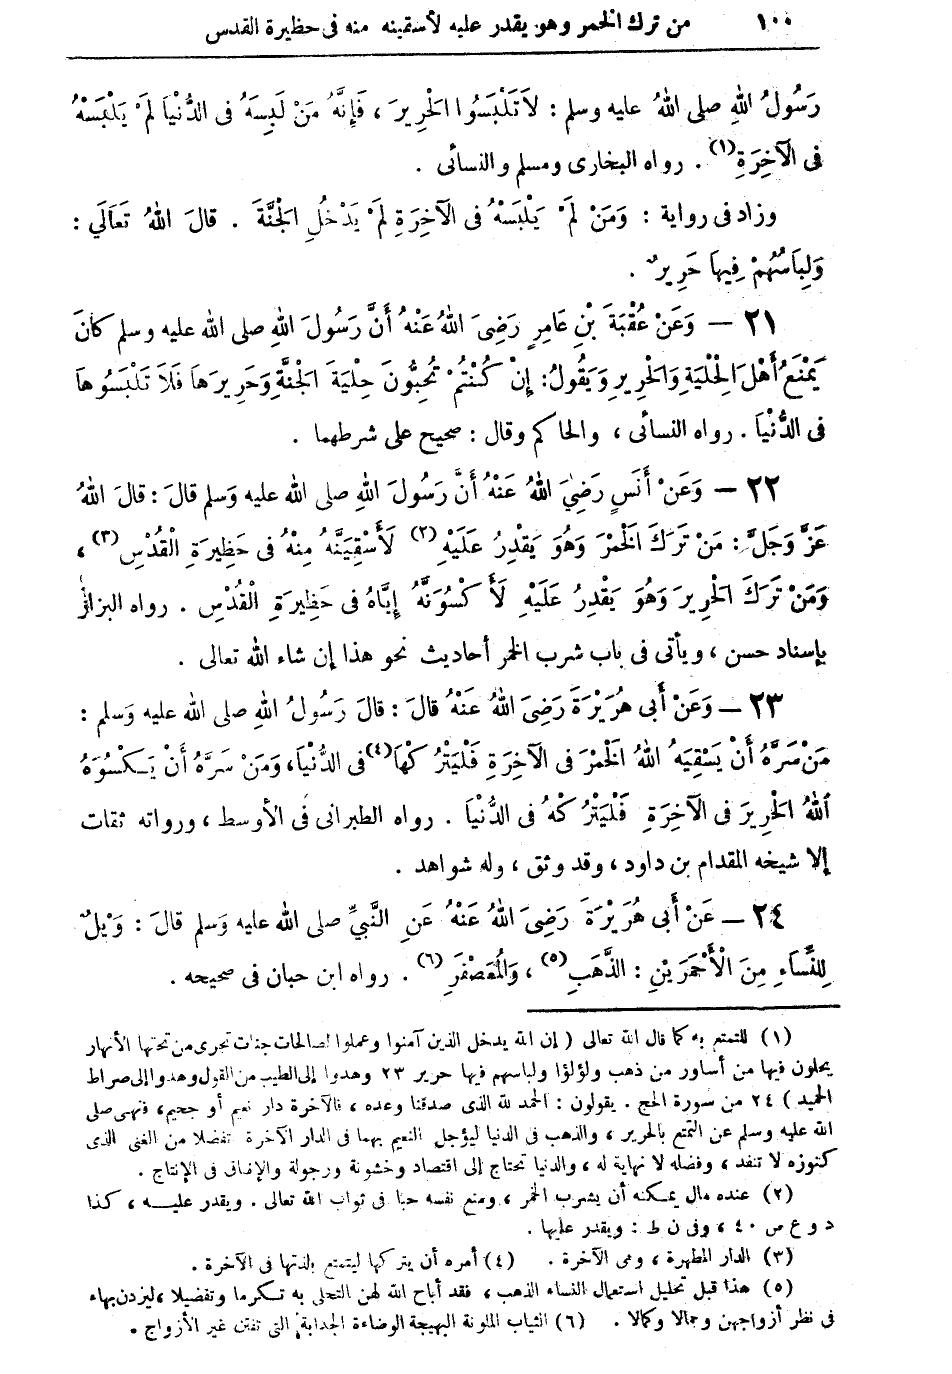 ١٠٠ من ترك الخمر وهو يقدر عليه لأسقينه منه فى حظيرة القدس
رَسُولُ اللهِ صلى اللهُ عليه وسلم : لاَ تَلْبَسُوا الْحَرِيرَ ، فَإِنَّهُ مَنْ لَبِسَهُ فى الدُّنْيَا لَمْ يَلْبَسْهُ
فى الْآخِرَةِ(١) . رواه البخارى ومسلم والنسائى .
وزاد فى رواية : وَمَنْ لَمْ يَلْبَسْهُ فى الْآخِرَةِ لَمْ يَدْخُلِ الْجَنَّةَ . قالَ اللهُ تَعَالَي :
وَلِبَاسُهُمْ فِيهَا حَرِيرٌ .
٢١ — وَعَنْ عُقْبَةَ بْنِ عَامِرٍ رَضِىَ اللهُ عَنْهُ أَنَّ رَسُولَ اللهِ صلى الله عليه وسلم كانَ
يَمْنَعُ أَهْلَ الْحِلْيَةِ وَالْحَرِيرِ وَيَقُولُ : إِنْ كُنْتُمْ تُحِبُّونَ حِلْيَةَ الْجَنَّةِ وَحَرِيرَهَا فَلاَ تَلْبَسُوهَا
فى الدُّنْيَا . رواه النسائى ، والحاكم وقال : صحيح على شرطهما .
٢٢ — وَعَنْ أَنَسٍ رَضِيَ اللهُ عَنْهُ أَنَّ رَسُولَ اللهِ صلى الله عليه وَسلم قالَ : قالَ اللهُ
عَزَّ وَجَلَّ : مَنْ تَرَكَ الْخَمْرَ وَهُوَ يَقْدِرُ عَلَيْهِ(٢) لَأَسْقِيَنَّهُ مِنْهُ فى حَظِيرَةِ الْقُدْسِ(٣) ،
وَمَنْ تَرَكَ الْحَرِيرَ وَهُوَ يَقْدِرُ عَلَيْهِ لَأَكْسُوَنَّهُ إِيَّاهُ فى حَظِيرَةِ الْقُدْسِ . رواه البزار
بإسناد حسن ، ويأتى فى باب شرب الخمر أحاديث نحو هذا إن شاء الله تعالى .
٢٣ — وَعَنْ أَبى هُرَيْرَةَ رَضِىَ اللهُ عَنْهُ قالَ : قالَ رَسُولُ اللهِ صلى الله عليه وَسلم :
مَنْ سَرَّهُ أَنْ يَسْقِيَهُ اللهُ الْخَمْرَ فى الْآخِرَةِ فَلْيَتْرُكْهَا(٤) فى الدُّنْيَا ، وَمَنْ سَرَّهُ أَنْ يَكْسُوَهُ
اللهُ الْحَرِيرَ فى الْآخِرَةِ فَلْيَتْرُكْهُ فى الدُّنْيَا . رواه الطبرانى فى الأوسط ، ورواته ثقات
إلا شيخه المقدام بن داود ، وقد وثق ، وله شواهد .
٢٤ — عَنْ أَبى هُرَيْرَةَ رَضِىَ اللهُ عَنْهُ عَنِ النَّبِيِّ صلى الله عليه وَسلم قالَ : وَيْلٌ
لِلنِّسَاءِ مِنَ الْأَحْمَرَيْنِ : الذَّهَبِ(٥) ، وَالْمُعَصْفَرِ(٦) . رواه ابن حبان فى صحيحه .
(١) للتمتع به كما قال الله تعالى ( إن الله يدخل الذين آمنوا وعملوا الصالحات جنات تجرى من تحتها الأنهار
يحلون فيها من أساور من ذهب ولؤلؤا ولباسهم فيها حرير ٢٣ وهدوا إلى الطيب من القول وهدوا إلى صراط
الحميد ) ٢٤ من سورة الحج . يقولون : الحمد لله الذى صدقنا وعده ، فالآخرة دار نعيم أو جحيم ، فنهى صلى
الله عليه وسلم عن التمتع بالحرير ، والذهب فى الدنيا ليؤجل النعيم بهما فى الدار الآخرة تفضلا من الغنى الذى
كنوزه لا تنفد ، وفضله لا نهاية له ، والدنيا تحتاج إلى اقتصاد وخشونة ورجولة والإنفاق فى الإنتاج .
(٢) عنده مال يمكنه أن يشرب الخمر ، ومنع نفسه حبا فى ثواب الله تعالى . ويقدر عليه ، كذا
د و ع ص ٤٠ ، وفى ن ط : ويقدر عليها .
(٣) الدار المطهرة ، وهى الآخرة . (٤) أمره أن يتركها ليتمتع بلذتها فى الآخرة .
(٥) هذا قبل تحليل استعمال النساء الذهب ، فقد أباح الله لهن التحلى به تكرما وتفضيلا ، ليزدن بهاء
فى نظر أزواجهن وجمالا وكمالا . (٦) الثياب الملونة البهيجة الوضاءة الجذابة التى تفتن غير الأزواج .